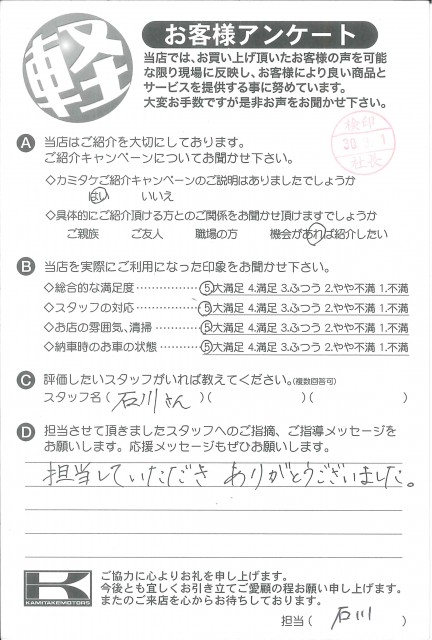 軽
お客様アンケート
当店では、お買い上げ頂いたお客様の声を可能
な限り現場に反映し、お客様により良い商品と
サービスを提供する事に努めています。
大変お手数ですが是非お声をお聞かせ下さい。
検印
30.3.1
社長
A 当店はご紹介を大切にしております。
ご紹介キャンペーンについてお聞かせ下さい。
◇カミタケご紹介キャンペーンのご説明はありましたでしょうか
はい いいえ
◇具体的にご紹介頂ける方とのご関係をお聞かせ頂けますでしょうか
ご親族 ご友人 職場の方 機会があれば紹介したい
B 当店を実際にご利用になった印象をお聞かせ下さい。
◇総合的な満足度……………⑤大満足 4.満足 3.ふつう 2.やや不満 1.不満
◇スタッフの対応……………⑤大満足 4.満足 3.ふつう 2.やや不満 1.不満
◇お店の雰囲気、清掃………⑤大満足 4.満足 3.ふつう 2.やや不満 1.不満
◇納車時のお車の状態………⑤大満足 4.満足 3.ふつう 2.やや不満 1.不満
C 評価したいスタッフがいれば教えてください。(複数回答可)
スタッフ名(石川さん)( )( )
D 担当させて頂きましたスタッフへのご指摘、ご指導メッセージを
お願いします。応援メッセージもぜひお願いします。
担当していただき ありがとうございました。
K
KAMITAKEMOTORS
ご協力に心よりお礼を申し上げます。
今後とも宜しくお引き立てご愛顧の程お願い申し上げます。
またのご来店を心からお待ちしております。
担当(石川)